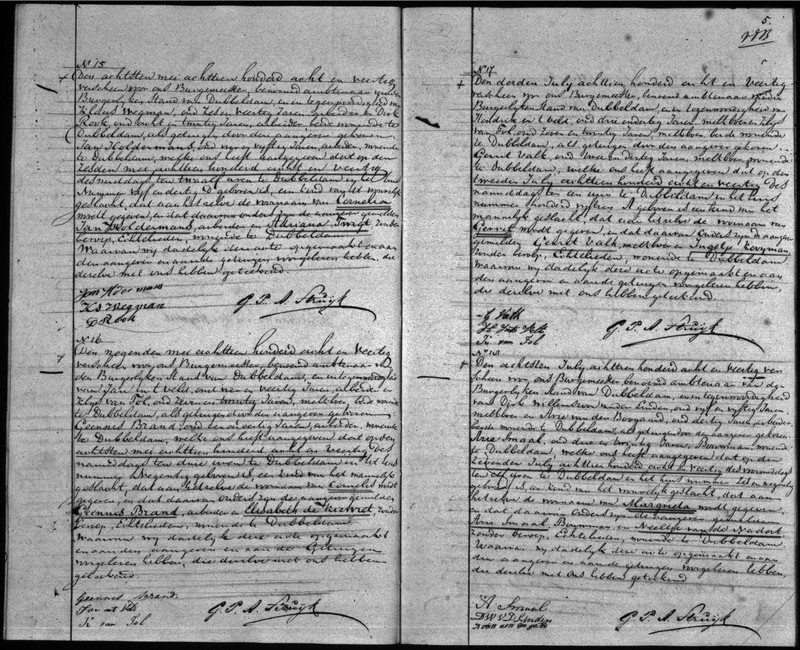 No 15
Den achtsten mei achttien honderd acht en veertig
verscheen voor ons Burgemeester, benoemd ambtenaar van den
Burgerlyken Stand van Dubbeldam, en in tegenwoordigheid van
Wegman, oud zes en veertig Jaren, en Dirk
Rook, oud en twintig Jaren, arbeider, beide wonende te
Dubbeldam, als getuigen door den aangever gekozen
Jan Holdermans, oud vyf en vyftig Jaren, arbeider, wonende
te Dubbeldam, welke ons heeft aangegeven dat op den
zesden mei achttien honderd acht en veertig
des middags ten twaalf ure te Dubbeldam in het huis
nummer vyf en dertig D geboren is, een kind van het vrouwelyk
geslacht, dat aan het zelve de voornaam van Cornelia
wordt gegeven, en dat daarvan ouders zyn de aangever gemelden
Jan Holdermans, arbeider en Adriana Smigt zonder
beroep, Echtelieden, wonende te Dubbeldam
Waarvan wy dadelyk deze acte opgemaakt en aan
den aangever en aan de getuigen voorgelezen hebben, die
dezelve met ons hebben geteekend.
Ks Wegman
D Rook
G. P. A. Struyk
No 16
Den negenden mei achttien honderd acht en veertig
verscheen voor ons Burgemeester benoemd ambtenaar van
den Burgerlyken Stand van Dubbeldam, en in tegenwoordigheid
van Jan in t Veld, oud vier en veertig Jaren, arbeider en
van Tol, oud zeven en twintig Jaren, melkboer beide wonende
te Dubbeldam, als getuigen door den aangever gekozen
Geennes Brand, oud een en veertig Jaren, arbeider, wonende
te Dubbeldam, welke ons heeft aangegeven dat op den
achtsten mei achttien honderd acht en veertig des
namiddags ten drie uren te Dubbeldam in het huis
nummer negentig geboren is, een kind van het mannelyk
geslacht, dat aan hetzelve de voornaam van Cornelis wordt
gegeven, en dat daarvan ouders zyn de aangever gemelden
Geennes Brand, arbeider en Elisabeth de zonder
beroep, Echtelieden, wonende te Dubbeldam
Waarvan wy dadelyk deze acte opgemaakt
en aan den aangever en aan de Getuigen
voorgelezen hebben, die dezelve met ons hebben
geteekend
Geennes Brand
Jan int Veld
van Tol
G. P. A. Struyk
5.
No 17
Den derden July achttien honderd acht en veertig
verscheen voor ons Burgemeester, benoemd ambtenaar van den
Burgerlyken Stand van Dubbeldam, en in tegenwoordigheid van
Hendrik in t Veld, oud drie en dertig Jaren, melkboer en
van Tol, oud zeven en twintig Jaren, melkboer beide wonende
te Dubbeldam, als getuigen door den aangever gekozen
Gerrit Valk, oud twee en dertig Jaren, melkboer, wonende
te Dubbeldam, welke ons heeft aangegeven dat op den
tweeden July achttien honderd acht en veertig des
namiddags ten een ure te Dubbeldam in het huis
nummer honderd vyftien A geboren is een kind van het
mannelyk geslacht, dat aan hetzelve de voornaam van
Gerret wordt gegeven, en dat daarvan Ouders zyn de aangever
gemelden Gerret Valk, melkboer en Ingetje Kooyman,
zonder beroep, Echtelieden, wonende te Dubbeldam
waarvan wy dadelyk deze acte opgemaakt en aan
den aangever en aan de getuigen voorgelezen hebben,
die dezelve met ons hebben geteekend.
Valk
van Tol
G. P. A. Struyk
No 18
Den achtsten July achttien honderd acht en veertig ver
scheen voor ons Burgemeester benoemd ambtenaar van den
Burgerlyken Stand van Dubbeldam, en in tegenwoordigheid
van Dirk Willem van der Linden, oud vyf en vyftig Jaren
melkboer en Arie van den Boogaard, oud dertig Jaren, arbeider
beide wonende te Dubbeldam als getuigen door den aangever gekozen
Arie Smaal, oud drie en twintig Jaren, Bouwman, wonende
te Dubbeldam, welke ons heeft aangegeven dat op den
zevenden July achttien honderd acht en veertig des voormiddags
te Dubbeldam in het huis nummer zes en negentig
geboren is, een kind van het vrouwelyk geslacht, dat aan
hetzelve de voornaam van Margrieta wordt gegeven,
en dat daarvan Ouders zyn de aangever gemelden
Arie Smaal Bouwman, en Neeltje van de Nadort
zonder beroep, Echtelieden, wonende te Dubbeldam
Waarvan wy dadelyk deze acte opgemaakt en aan
den aangever en aan de getuigen voorgelezen hebben,
die dezelve met ons hebben geteekend
A Smaal
DW VD Linden
G. P. A. Struyk